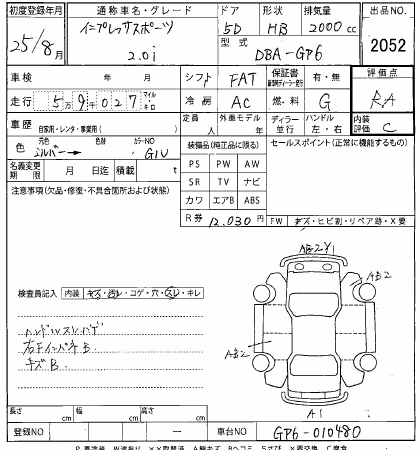 初度登録年月 通称車名・グレード ドア 形状 排気量 出品NO.
25/8月 インプレッサスポーツ 5D HB 2000cc
2.0i 型式 DBA-GP6 2052
車検 年 月 シフト FAT 保証書 有・無 評価点
走行 5万9千027マイルキロ 冷房 AC 燃料 G RA
車歴 自家用・レンタ・事業用( ) 定員 人 外車モデル 年 ディーラー 並行 ハンドル 左・右 内装評価 C
色 元色 シルバー→ 色替 カラーNO G1U 装備品(純正品に限る) セールスポイント(正常に機能するもの)
名義変更期限 月 日迄 積載 t PS PW AW
注意事項(欠品・修復・不具合箇所および状態) SR TV ナビ
カワ エアB ABS
R券 12,030円 FW キズ・ヒビ割・リペア跡・X要
AB2Y1
AB2
検査員記入 内装 キズ・汚レ・コゲ・穴・スレ・キレ
ハンドルスレハゲ
右Fインパネ B
キズB
AB2
A1
長さ cm 幅 cm 高さ cm
登録NO ー 車台NO GP6-010480